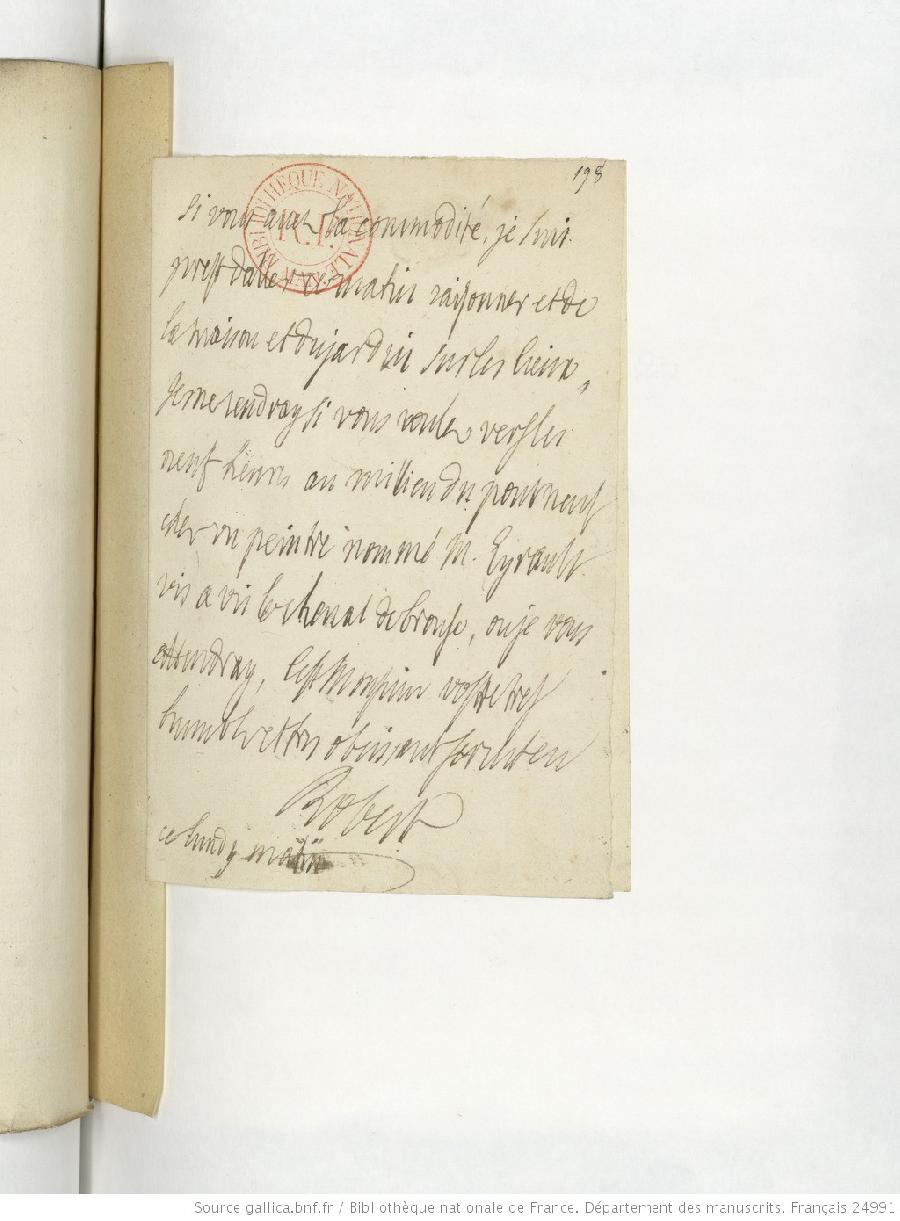 198
BIBLIOTHEQUE NATIONALE MAN
R.F.
si vous avez la commodité, je suis
prest daller ce matin raisonner et de
la maison et du jardin sur les lieux,
Je me rendray si vous voulez vers les
neuf heures au millieu du pont neuf
chez un peintre nommé M. Eyrault
vis a vis le cheval de bronse, ou je vous
attendray, Cest Monsieur vostre tres
humble et tres obeissant serviteur
Robert
ce lundy matin
Source gallica.bnf.fr / Bibliothèque nationale de France. Département des manuscrits. Français 24991